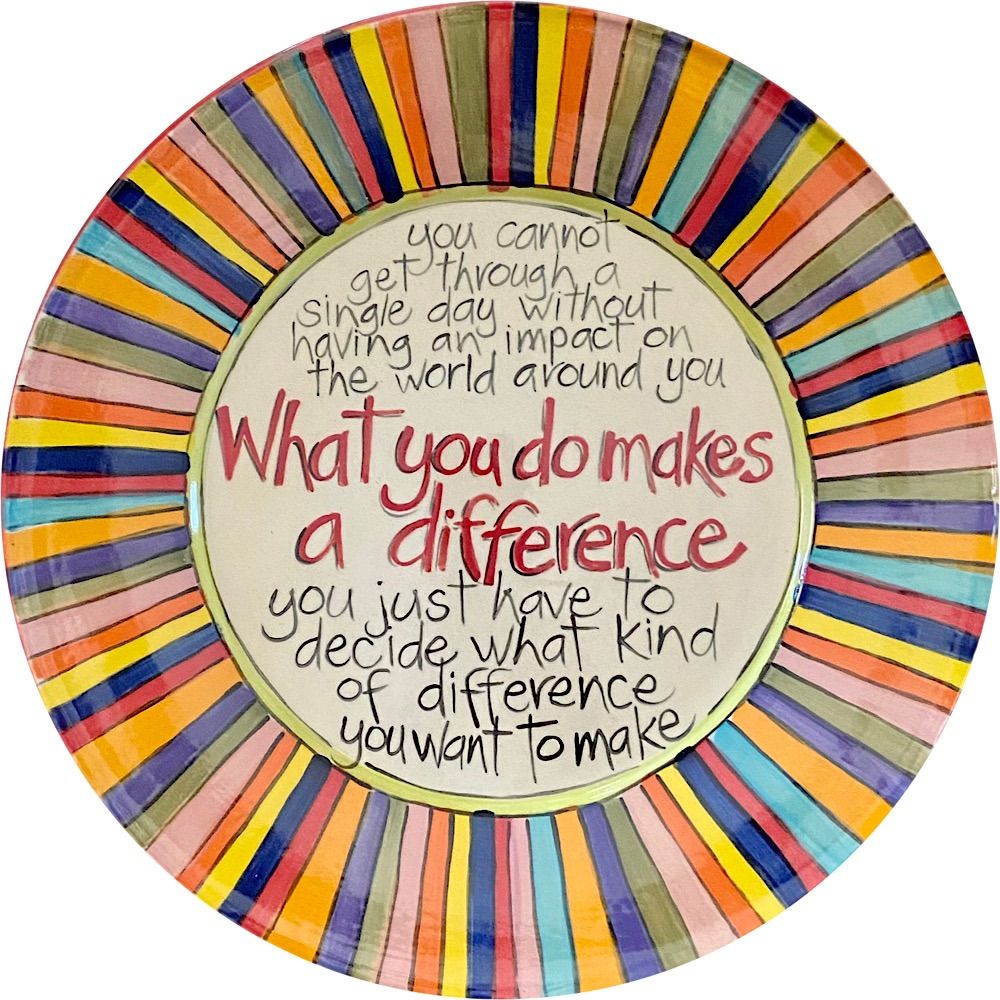 you cannot
get through a
single day without
having an impact on
the world around you
What you do makes
a difference
you just have to
decide what kind
of difference
you want to make